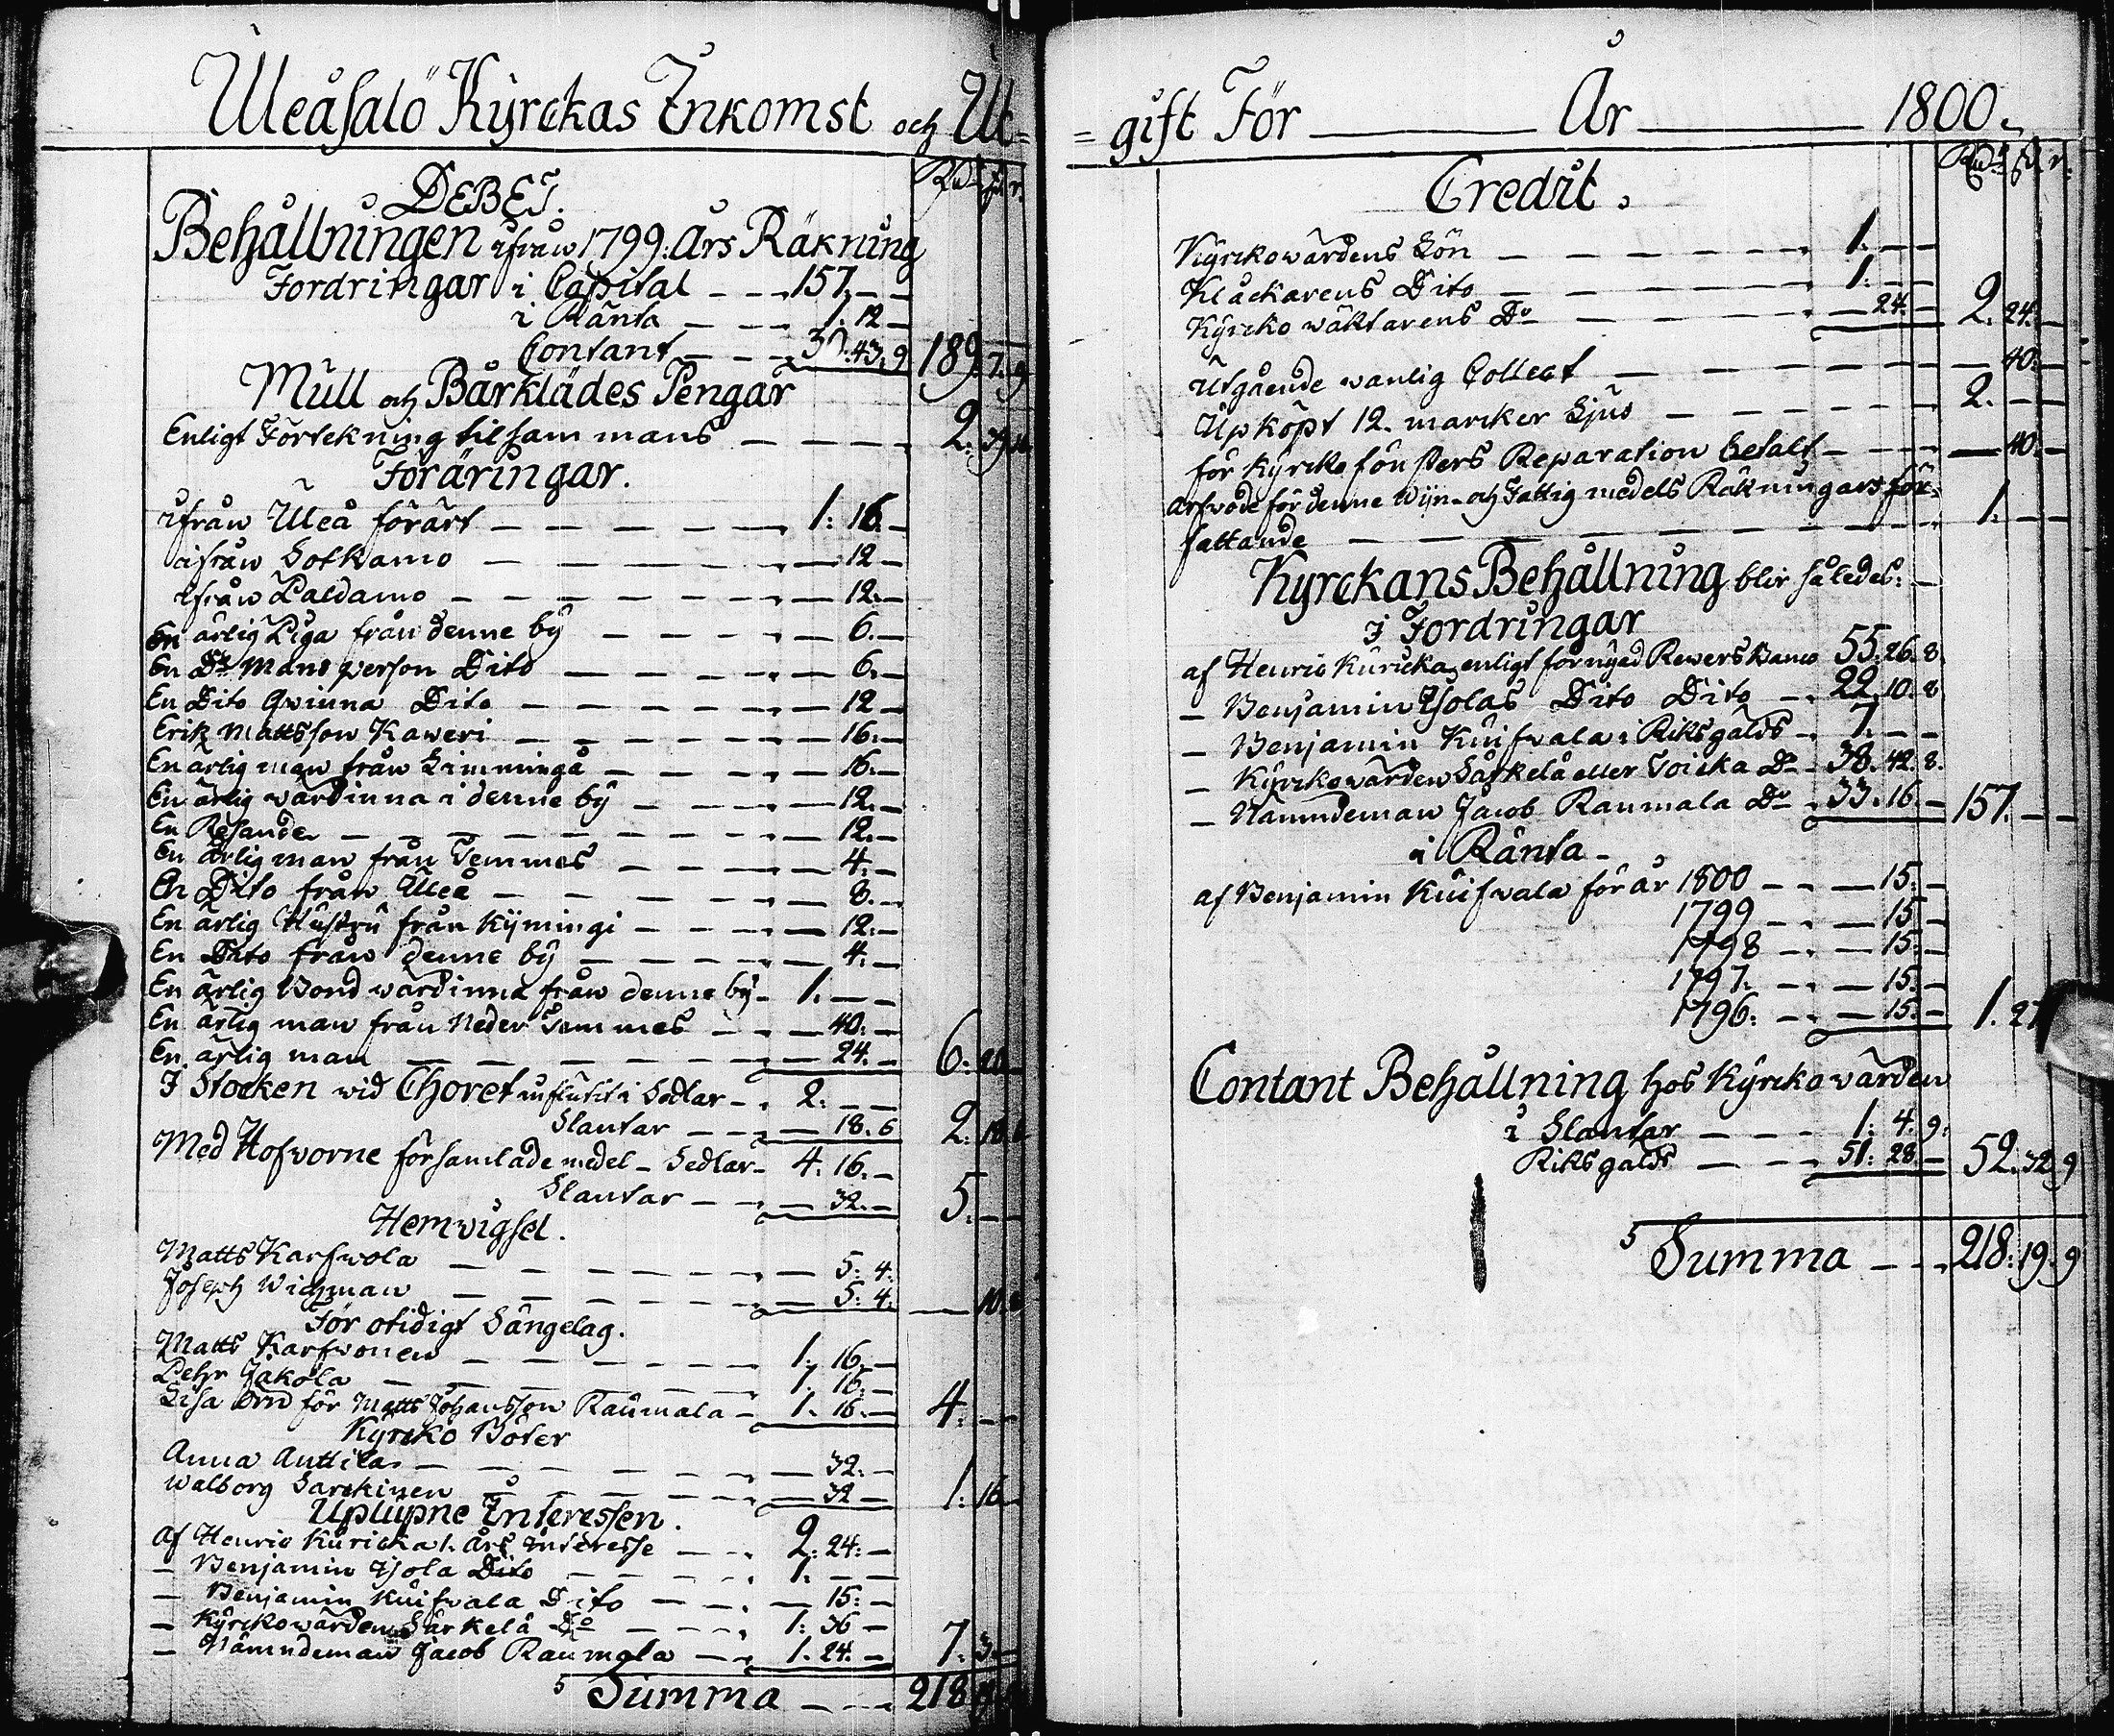 Uleåsalo Kyrckas Inkomst och Ut=
DEBET.
Rd. ß. r.
Behållningen ifrån 1799: Års Räkning
Fordringar i Capital — — 157. — —
i Ränta — — — 1. 12 —
Contant — — — 30. 43. 9 189. 7. 9
Mull och Bårklädes Pengar
Enligt Förtekning tilsammans — — — — 2. 39
Föräringar.
ifrån Uleå förärt — — — — — 1: 16. —
ifrån Sotkamo — — — — — 12 —
ifrån Paldamo — — — — — 12. —
En ärlig Piga från denne by — — — — 6. —
En Do Mans person Dito — — — — 6. —
En Dito Qwinna Dito — — — — — 12 —
Erik Mattsson Kaweri — — — — — 16. —
En ärlig man från Limminga — — — — 16. —
En ärlig wärdinna i denne by — — — — 12. —
En Resande — — — — — — 12. —
En ärlig man från Temmes — — — — 4. —
En Dito från Uleå — — — — — 8. —
En ärlig Hustru från Kymingi — — — — 12. —
En Dito från denne by — — — — 4. —
En ärlig Bond wärdinna från denne by — 1. — —
En ärlig man från Neder Temmes — — — 40. —
En ärlig man — — — — — — 24. — 6: 28
I Stocken wid Choret influtit i Sedlar — 2. — —
Slantar — — — 18. 6 2. 18. 6
Med Hofvorne församlade medel — Sedlar — 4. 16. —
Slantar — — — 32. — 5. — —
Hemwigsel.
Matts Karfwola — — — — — 5: 4.
Joseph Wichman — — — — — 5: 4. — 10. 8
För otidigt Sängelag.
Matts Karfwonen — — — — — 1. 16. —
Pehr Jakola — — — — — 1. 16. —
Lisa Ord för Matts Johansson Raumala — 1. 16. — 4. — —
Kyrcko Böter
Anna Anttila — — — — — 32. —
Walborg Sarckinen — — — — 32 — 1. 16 —
Uplupne Interessen.
Af Henric Kuricka 1. Års Interesse — — 2: 24: —
— Benjamin Isola Dito — — — 1. — —
— Benjamin Kuifwala Dito — — — 15: —
— Kyrckowärden Särkelä Do — — 1: 36 —
— Nämndeman Jacob Raumala — — 1. 24. — 7. 3. —
Summa — — — 218
=gift För — År — 1800.
Rd. ß. r.
Credit.
Kyrckowärdens Lön — — — — — 1. — —
Klåckarens Dito — — — — — 1. — —
Kyrcko wäktarens Do — — — — — 24. — 2. 24. —
Utgående wanlig Collect — — — — — 40: —
Upköpt 12. marcker Ljus — — — — 2. — —
för Kyrcko fönsters Reparation betalt — — — 40. —
Arfwode för denne Wijn- och Fattig medels Räkningars för=
fattande — — — — — — — 1. — —
Kyrckans Behållning blir således: —
I Fordringar
af Henric Kuricka enligt förnyad Revers Banco 55. 26. 8.
— Benjamin Isolas Dito Dito — 22. 10. 8
— Benjamin Kuifwala i Riksgälds — 7. — —
— Kyrckowärden Särkelä eller Toicka Do — 38. 42. 8.
— Nämndeman Jacob Raumala Do — 33. 16. — 157. — —
i Ränta —
af Benjamin Kuifwala för år 1800 — — 15: —
1799 — — 15 —
1798 — — 15: —
1797. — — 15. —
1796: — — 15. — 1. 27
Contant Behållning hos Kyrckowärden
i Slantar — — — 1. 4. 9.
Riksgälds — — — 51: 28. — 52. 32. 9
Summa — — 218: 19. 9